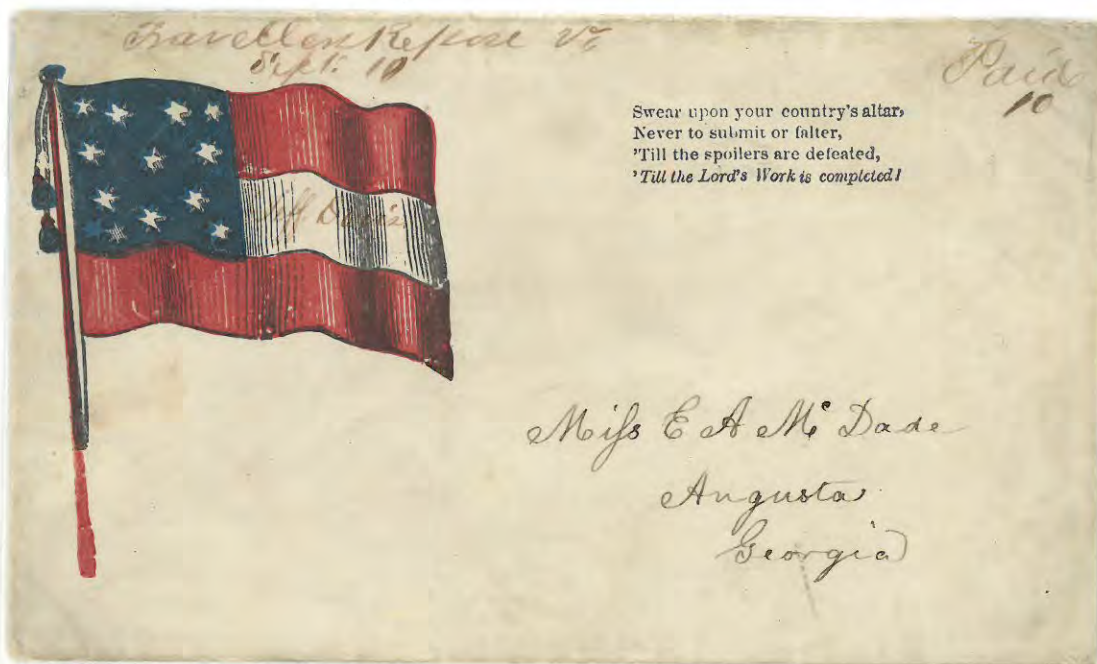 Travellers Repose Va
Sept. 10
Paid
10
Swear upon your country's altar,
Never to submit or falter,
'Till the spoilers are defeated,
'Till the Lord's Work is completed!
Jeff Davis
Miss E A Mc Dade
Augusta
Georgia